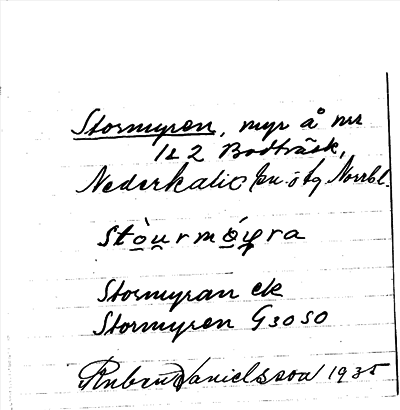 Stormyren, myr å nr
1 & 2 Bodträsk,
Nederkalix sn o tg Norrbl.
Stò̤ṳrmó̤y̤ra
Stormyran ek
Stormyren G3050
Ruben Danielsson 1935